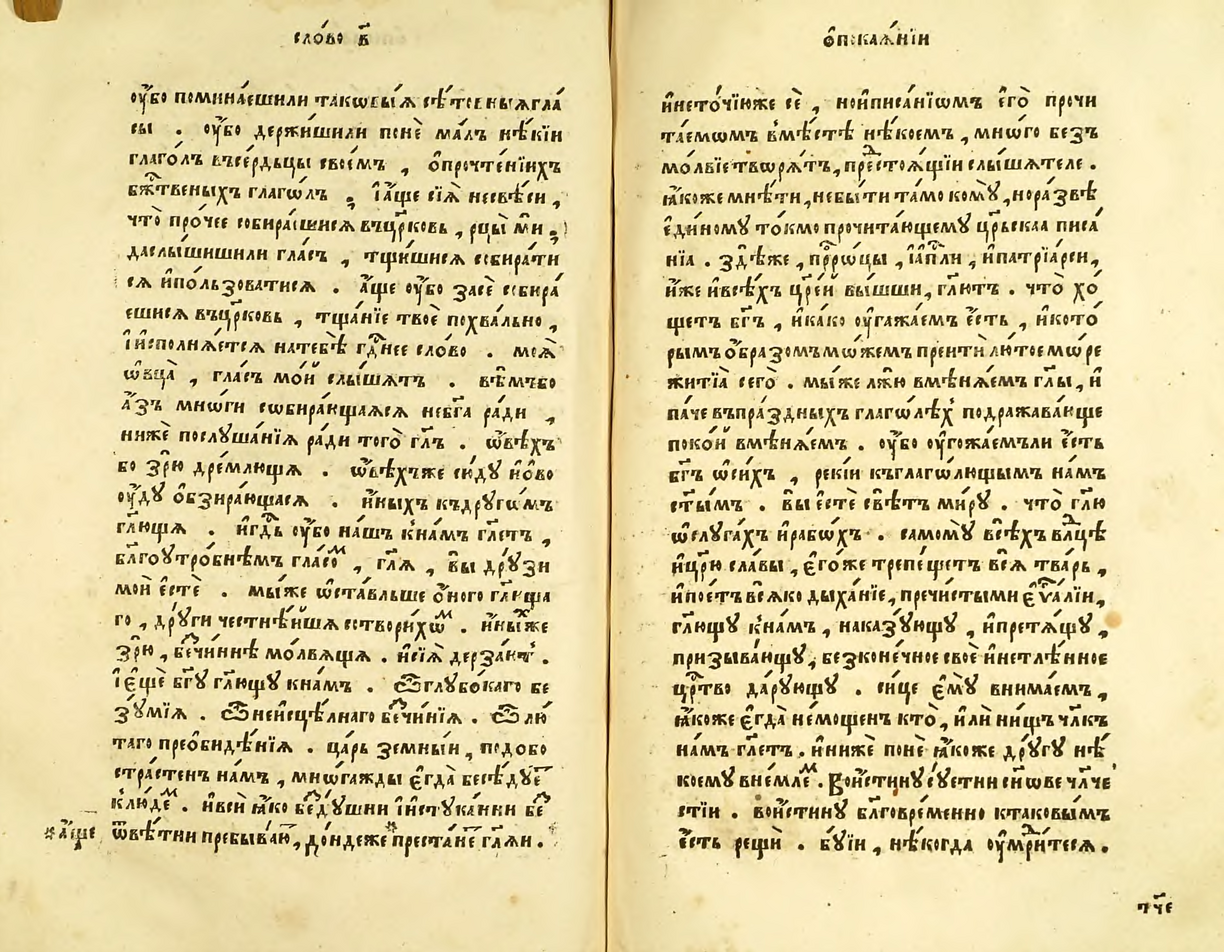 сло́во в҃
ᲂу҆́бо помина́еши ли такѡвы́ѧ сѣ́товныѧ гла́
сы . ᲂу҆́бо держи́ши ли понѐ ма́лъ нѣ́кїи
глаго́лъ въ се́рдьцы свое́мъ , ѡ҆ прочте́нїихъ
бж҃твеныхъ глаго́лъ ; і҆ а҆́ще сїѧ̀ несвѣ́си ,
что̀ про́чее собира́ешисѧ въ цр҃ковь , рцы́ ми ;
да слы́шиши ли гла́съ , тщи́шисѧ собира́ти
сѧ и҆ по́льзоватисѧ . а҆́ще ᲂу҆́бо за сѐ собира́
ешисѧ въ цр҃ковь , тща́нїе твоѐ похва́льно ,
і҆ и҆сполнѧ́етсѧ на тебѣ̀ гд҃нее сло́во . моѧ̀
ѡ҆́вца̀ , гла́съ мо́й слы́шѧтъ . вѣ́мъ бо
а҆́зъ мнѡ́ги собира́ющаѧсѧ не бг҃а ра́ди ,
нижѐ послꙋша́нїѧ ра́ди того̀ гл҃ъ . ѡ҆́вѣхъ
бо зрю̀ дре́млющѧ . ѡ҆́вѣхъ же сю́дꙋ и҆ ѻ҆́во
ᲂу҆́дꙋ ѡ҆бзира́ющасѧ . и҆́ныхъ къ дрꙋги́мъ
гл҃ющѧ . и҆ гдⷭ҇ь ᲂу҆́бо на́шъ к на́мъ гл҃етъ ,
бл҃гоꙋтро́бнѣмъ гла́соⷨ , гл҃ѧ , вы̀ дрꙋ́зи
мои̑ є҆стѐ . мы́ же ѡ҆ста́вльше ѻ҆́ного гл҃юща
го , дрꙋ́ги честнѣ́йшѧ сотвори́хѡⷨ . и҆ны́ⷯ же
зрю̀ , беⷱ҇и́ннѣ мо́лвѧщѧ . и҆ сїѧ̀ дерза́ютъ .
і҆ є҆щѐ бг҃ꙋ гл҃ющꙋ к на́мъ . ѽ глꙋбо́каго бе
зꙋ́мїѧ . ѽ неи҆сцѣ́лнаго беⷱ҇и́нїѧ . ѽ лю́
таго преѻ҆би́дѣнїѧ . ца́рь земны́и , подобо
стра́стенъ на́мъ , мнѡ́гажды є҆гда̀ бесѣ́дꙋеⷮ
к лю́деⷨ . и҆ всѝ ꙗ҆́ко беⷥдꙋ́шни і҆ и҆стꙋка́нни беⷥ
ѿвѣ́тни пребыва́юⷮ , до́ндеже * преста́неⷮ гл҃ѧи .
* а҆́ще
ѡ҆ пока́ѧнїи
и҆ не то́чїю же сѐ , но и҆ писа́нїѡмъ є҆го̀ прочи
та́емѡмъ в мѣ́стѣ нѣ́коемъ , мно́го безъ
мо́лвїе творѧ́тъ , предⷭ҇тоѧ́щїи слы́шѧтеле .
ꙗ҆́коже мнѣ́ти , не бы́ти та́мо комꙋ̀ , но ра́звѣ
є҆ди́номꙋ то́кмо прочита́ющемꙋ цр҃ьскаа писа́
нїа . здѣ́ же , прⷪ҇ро́цы , і҆ а҆пⷭ҇ли , и҆ патрїа́рси ,
и҆́же и҆ всѣ́хъ цр҃е́й вы́шши , гл҃ютъ . что̀ хо́
щетъ бг҃ъ , и҆ ка́ко ᲂу҆гажа́емъ є҆́сть , и҆ кото́
рымъ ѻ҆́бразомъ мо́жемъ преити̑ лю́тое мо́ре
житїа̀ сего̀ . мы́ же лжю̀ вмѣнѧ́емъ гл҃ы , и҆
па́че въ пра́здныхъ глаго́лѣхъ подража́вающе
поко́й вмѣнѧ́емъ . ᲂу҆́бо ᲂу҆гожа́емъ ли є҆́сть
бг҃ъ ѡ҆ си́хъ , рекі́и къ глаго́лющымъ на́мъ
ст҃ы́мъ . вы̀ є҆стѐ свѣ́тъ ми́рꙋ . что̀ гл҃ю
ѡ҆ слꙋга́хъ и҆ рабѡ́хъ . самомꙋ̀ всѣ́хъ влⷣцѣ
и҆ цр҃ю̀ сла́вы , є҆го́же трепе́щетъ всѧ̀ тва́рь ,
и҆ пое́тъ всѧ́ко дыха́нїе , пречи́стыми є҆ѵⷢ҇а́лїи ,
гл҃ющꙋ к на́мъ , наказꙋ́ющꙋ , и҆ претѧ́щꙋ ,
призыва́ющꙋ , безконе́чное своѐ и҆ нетлѣ́нное
црⷭ҇тво дарꙋ́ющꙋ . си́це є҆мꙋ̀ внима́емъ ,
ꙗ҆́коже є҆гда̀ не́мощенъ кто̀ , и҆лѝ ни́щъ чл҃къ
на́мъ гл҃етъ . и҆ нижѐ понѐ ꙗ҆́коже дрꙋ́гꙋ нѣ́
коемꙋ вне́млеⷨ . вои҆́стинꙋ сꙋ́етни сн҃ове чл҃че
стїи . вои́стинꙋ бл҃говре́менно к таковы́мъ
є҆́сть рещѝ . бꙋ́їи , нѣ́когда ᲂу҆мⷣри́тесѧ .
пч҃е